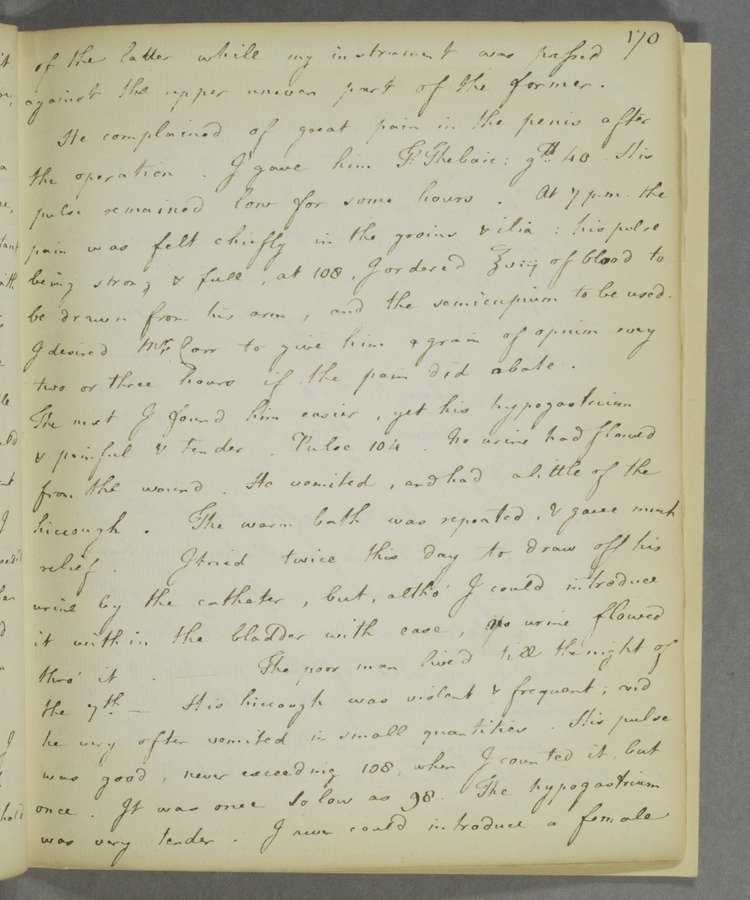 170
of the latter while my instrument was passed
against the upper uneven part of the former.
He complained of great pain in the penis after
the operation. I gave him Tr. Thebaic: gtt 40. His
pulse remained low for some hours. At 7 p.m. the
pain was felt chiefly in the groins & ilia: his pulse
being strong & full, at 108, I ordered ℥viij of blood to
be drawn from his arm, and the semicupium to be used.
I desired Mr. Carr to give him a grain of opium every
two or three hours if the pain did abate.
The next I found him easier, yet his hypogastrium
& painful & tender. Pulse 104. No urine had flowed
from the wound. He vomited, and had a little of the
hiccough. The warm bath was repeated, & gave much
relief. I tried twice this day to draw off his
urine by the catheter, but, altho' I could introduce
it within the bladder with ease, no urine flowed
thro' it. — The poor man lived till the night of
the 7th — His hiccough was violent & frequent; and
he very often vomited in small quantities. His pulse
was good, never exceeding 108, when I counted it, but
once. It was once so low as 98. The hypogastrium
was very tender. I never could introduce a female